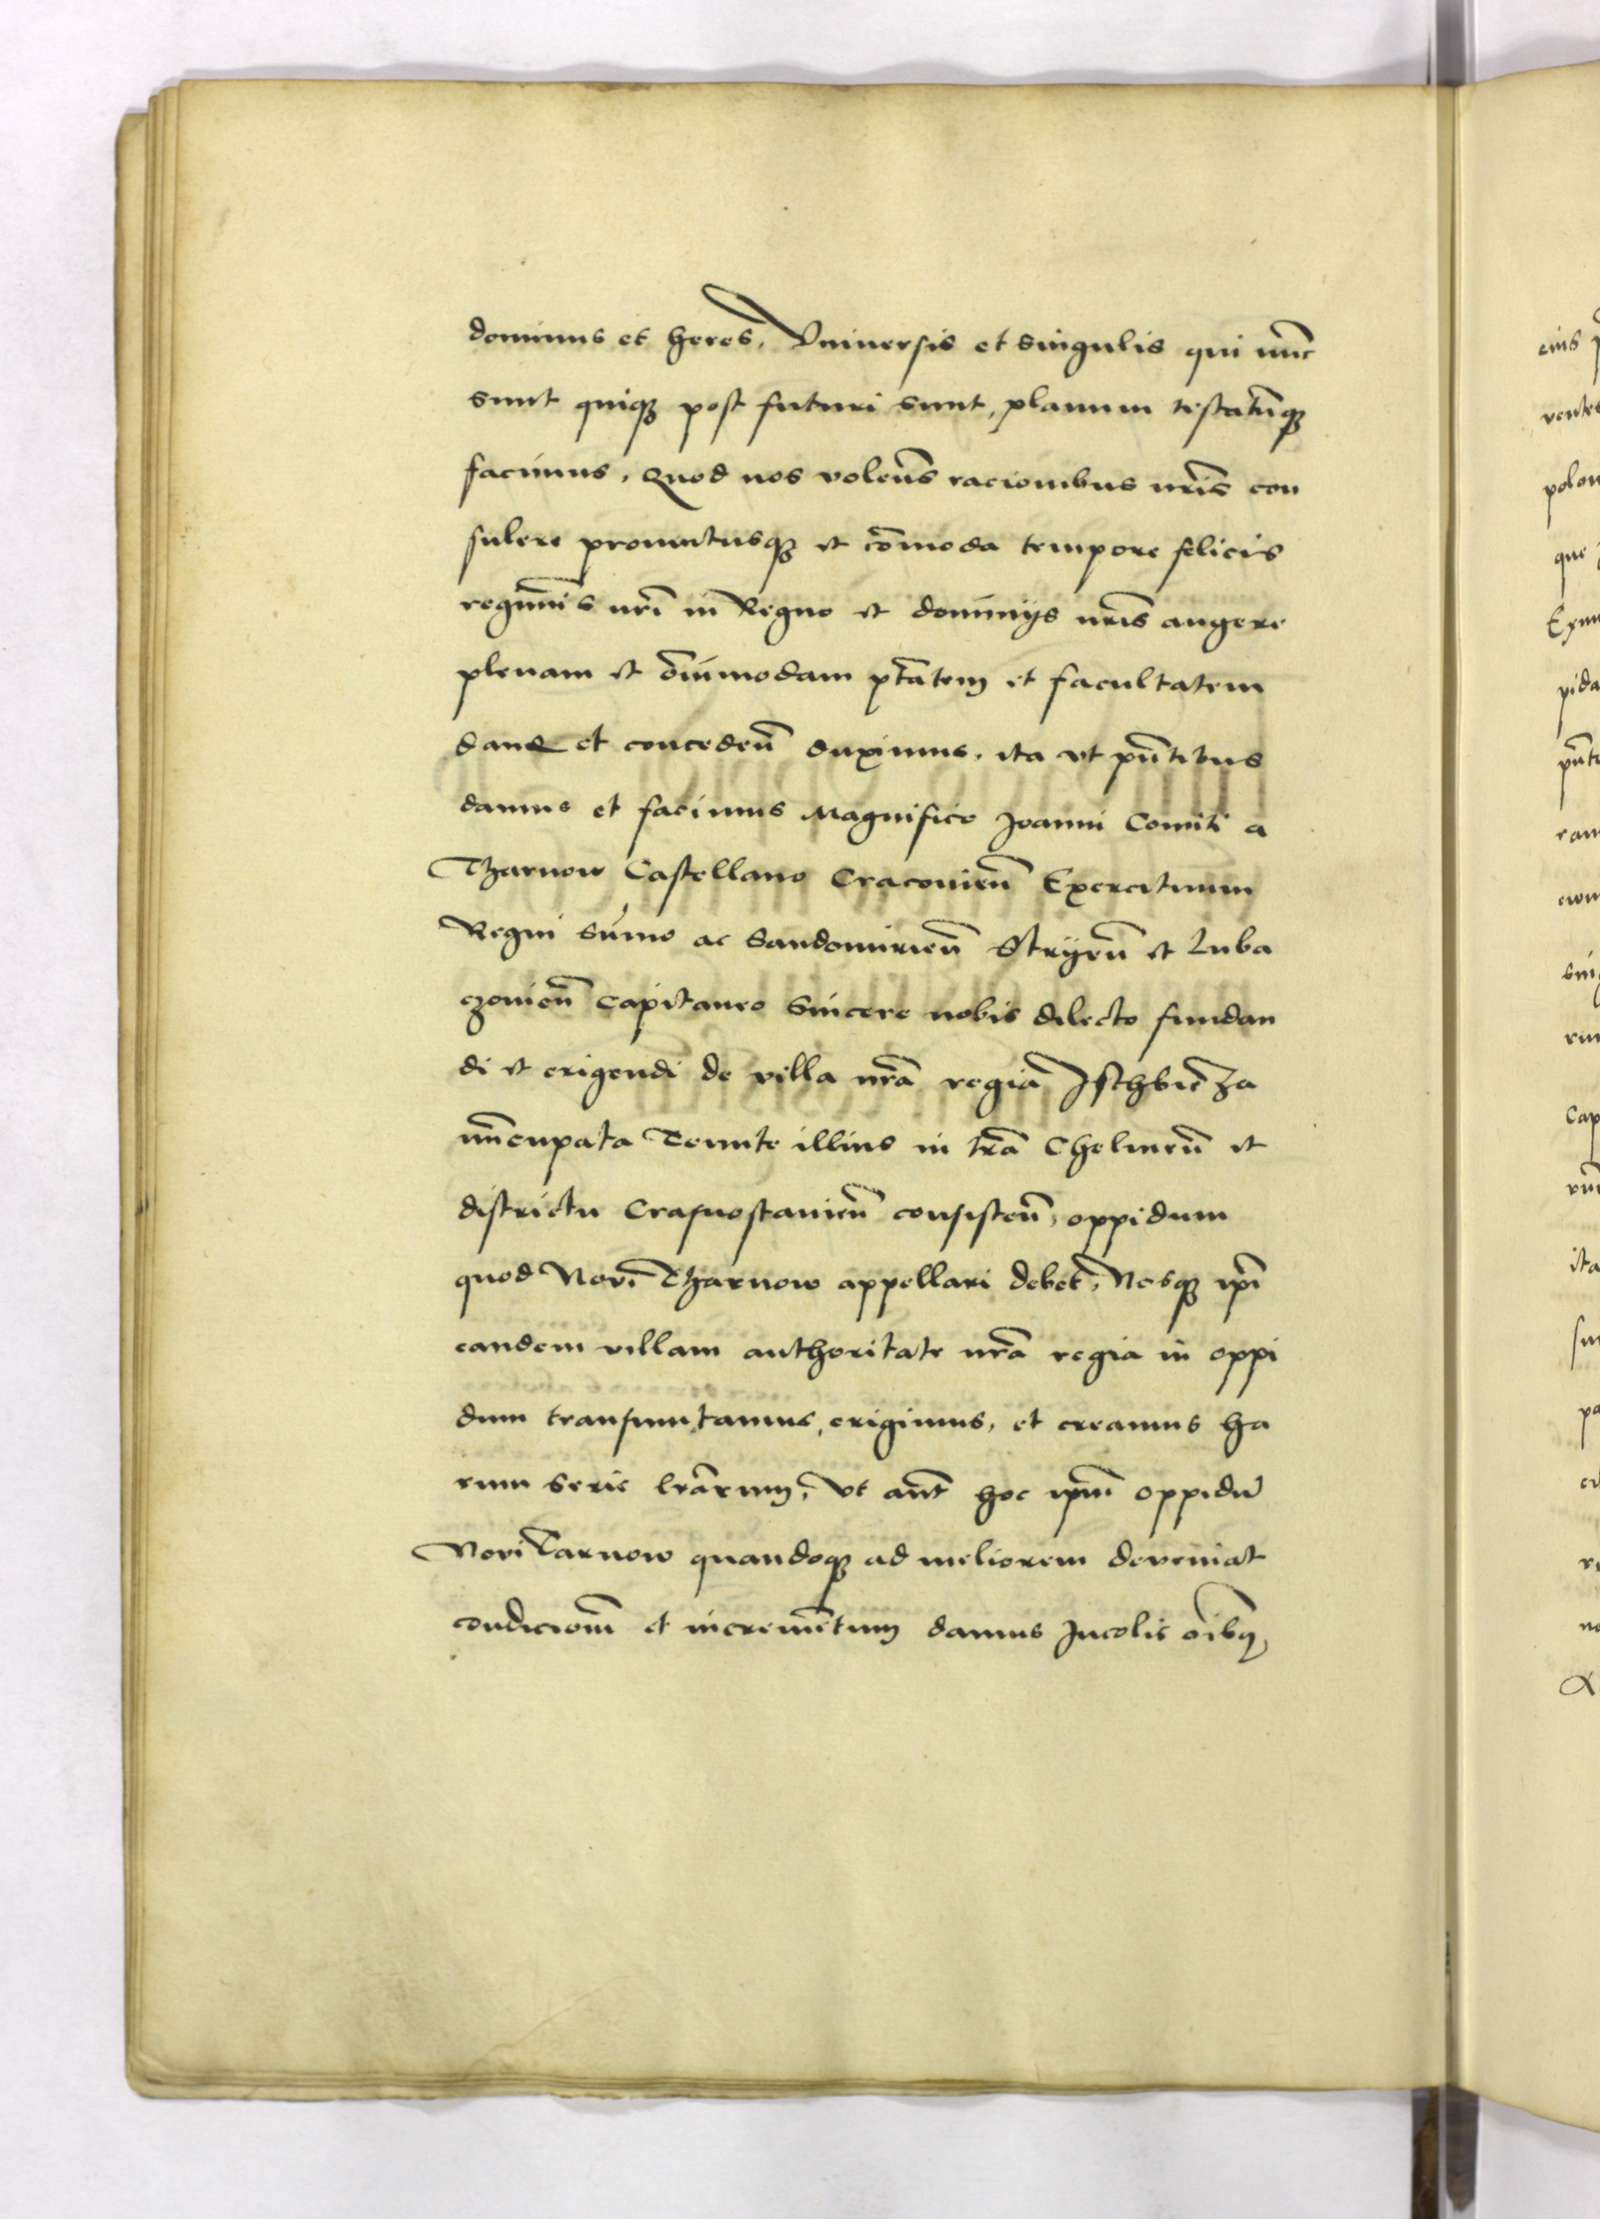 dominus et heres. Vniuersis et singulis qui nu̅c
sunt quiq3 post futuri sunt, planum testatu̅q3
facimus. Quod nos volen̅s racionibus nr̅is con
sulere prouentusq3 et co̅moda tempore felicis
regimi̅s nr̅i in Regno et dominijs nr̅is augere
plenam et oi̅mmodam pt̅atem et facultatem
dand et conceden̅ duximus, ita vt pn̅tibus
damus et facimus Magnifico Joanni Comiti a
Tharnow Castellano Cracouien̅ Exercituum
Regni su̅mo ac Sandomirien̅ Stryen̅ et Luba
czouien̅ Capitaneo Sincere nobis dilecto fundan
di et erigendi de villa nr̅a regia̅
nu̅cupata Tenute illius in tr̅a Chelmen̅ et
districtu Crasnostauien̅ consisten̅, oppidum
quod Noui̅ Tharnow appellari debet, Nosq3 ip̅i
eandem villam authoritate nr̅a regia in oppi
dum transmutamus, erigimus, et creamus ha
rum serie lr̅arum, Vt aut̅ hoc ip̅m oppidu̅
Noui Tarnow quandoq3 ad meliorem deueniat
condiciom̅ et increme̅tum damus Incolis oi̅bq3

eius
ventes
polon
que
Exim
pida
pn̅t
ram
Cap
ita